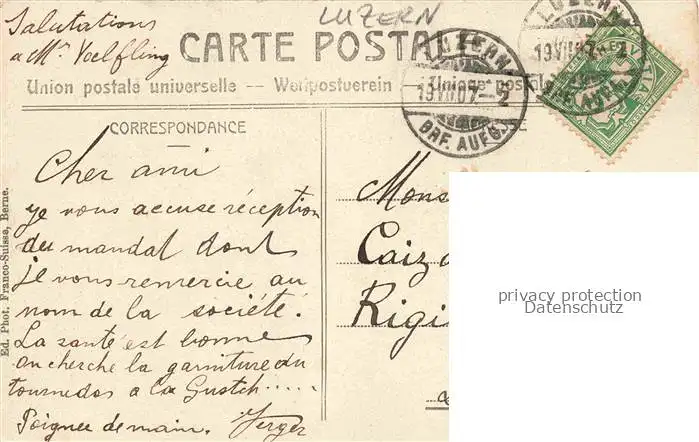 Salutations
a Mr Voelfling
LUZERN
CARTE POSTALE
Union postale universelle -- Weltpostverein -- Unione postale
LUZERN
19.VII.07.-2
BRF. AUFG.
LUZERN
19.VII.07.-2
BRF. AUFG.
CORRESPONDANCE
Cher ami
je vous accuse réception
du mandat dont
je vous remercie au
nom de la société.
La santé est bonne
on cherche la garniture du
tournedos a la
Poignee de main.
Mons
Caiz
Rigi
Ed. Phot. Franco-Suisse, Berne.
privacy protection
Datenschutz